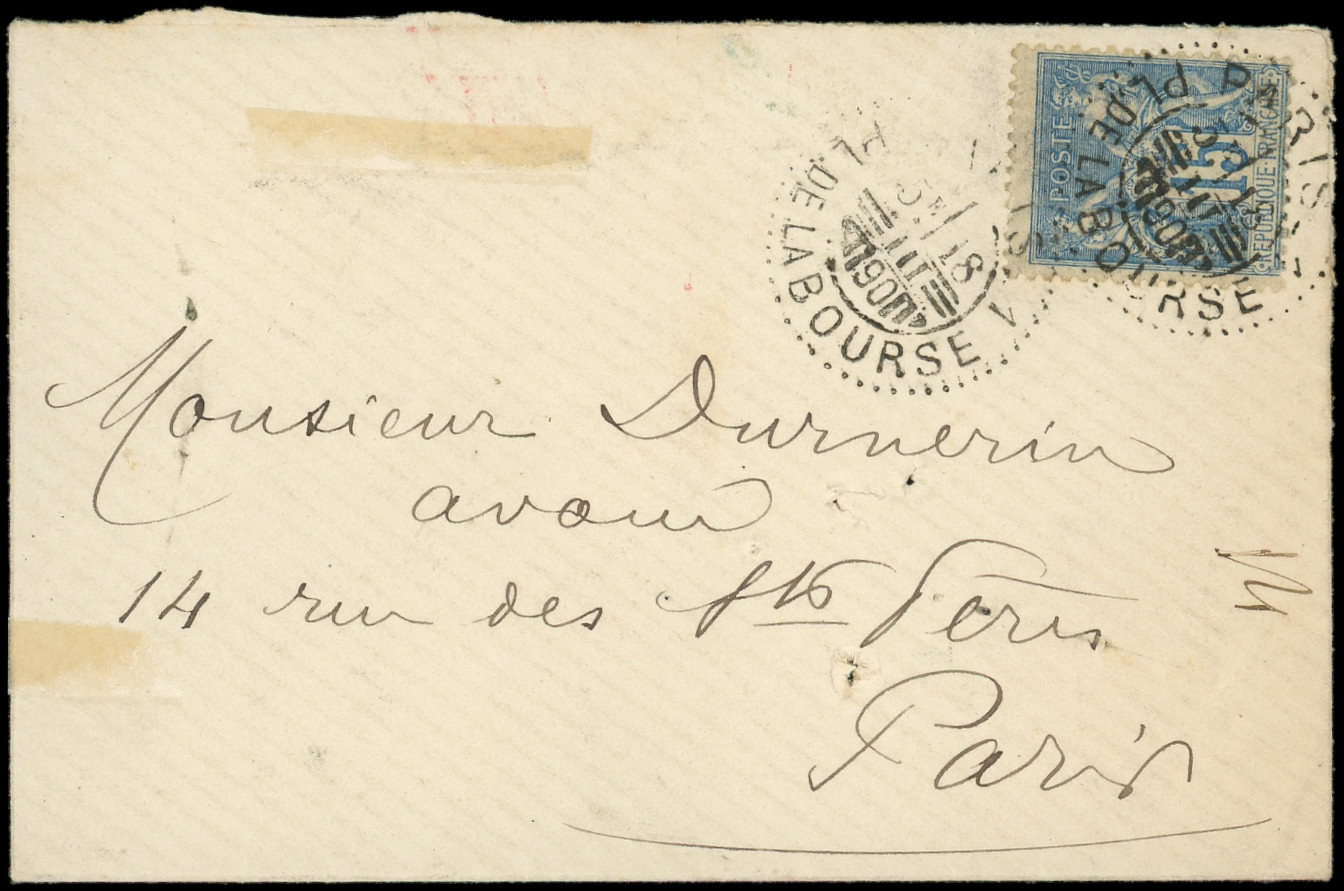 POSTE
15
REPUBLIQUE FRANÇAISE
PARIS
PL. DE LA BOURSE
PL. DE LA BOURSE
Monsieur Durnerin
avoué
14 rue des Sts Pères
Paris